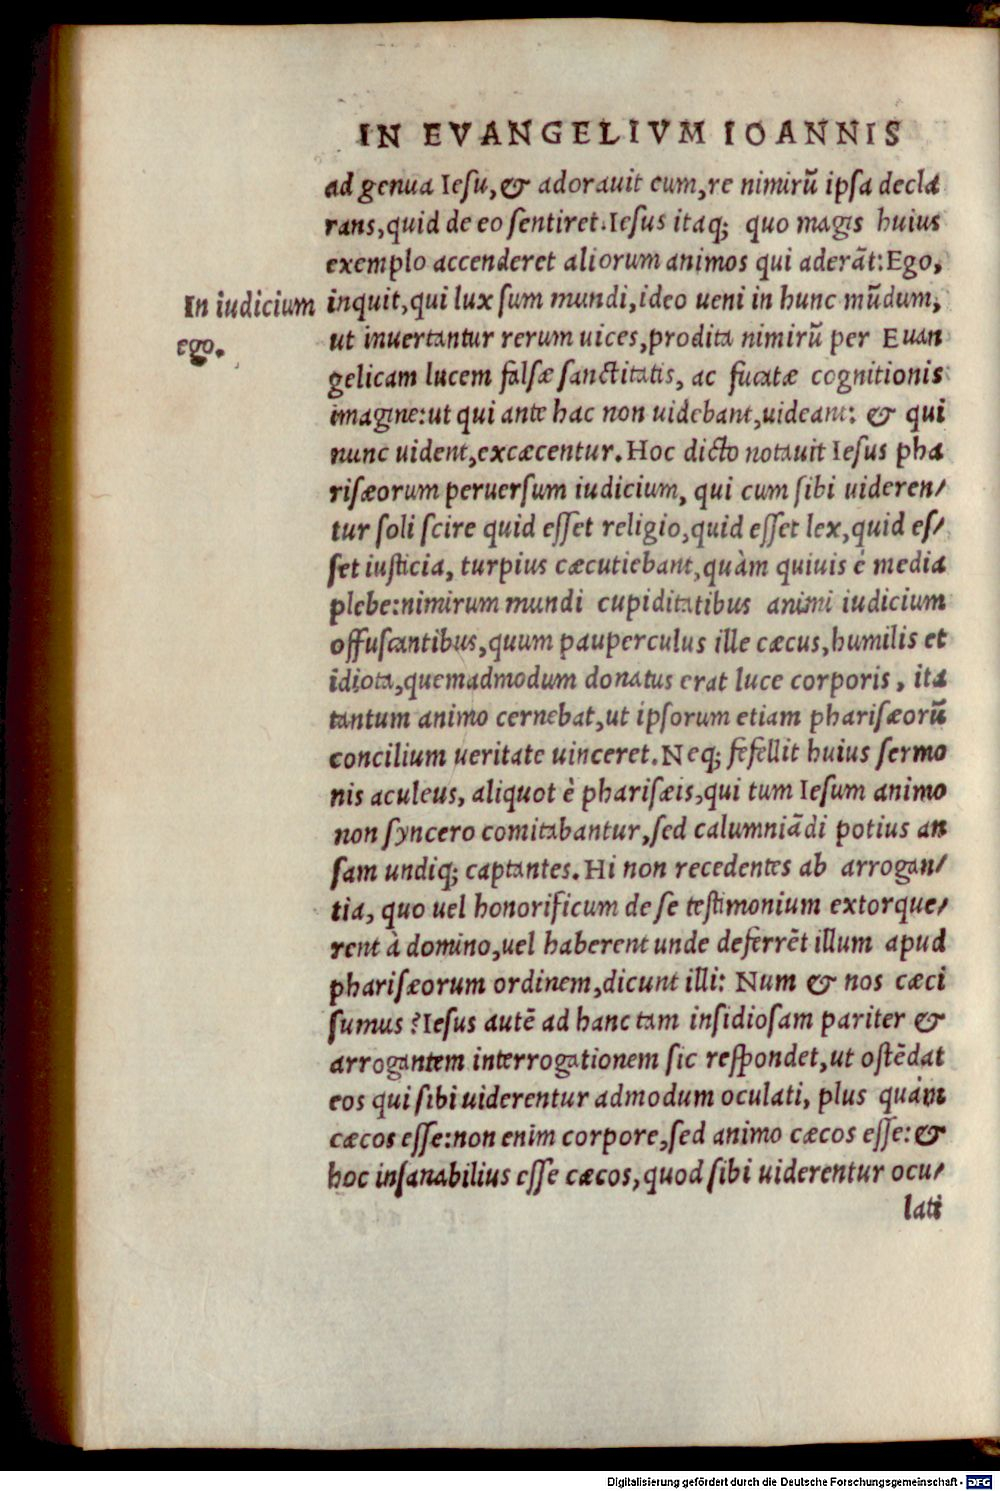 IN EVANGELIVM IOANNIS
ad genua Iesu,& adorauit eum,re nimirũ ipsa decla
rans,quid de eo sentiret.Iesus itaq; quo magis huius
exemplo accenderet aliorum animos qui aderãt:Ego,
In iudicium ego.
inquit,qui lux sum mundi,ideo ueni in hunc mũdum,
ut inuertantur rerum uices,prodita nimirũ per Euan
gelicam lucem falsæ sanctitatis, ac fucatæ cognitionis
imagine:ut qui ante hac non uidebant,uideant: & qui
nunc uident,excæcentur.Hoc dicto notauit Iesus pha
risæorum peruersum iudicium, qui cum sibi uideren/
tur soli scire quid esset religio,quid esset lex,quid es/
set iusticia, turpius cæcutiebant,quàm quiuis è media
plebe:nimirum mundi cupiditatibus animi iudicium
offuscantibus,quum pauperculus ille cæcus,humilis et
idiota,quemadmodum donatus erat luce corporis, ita
tantum animo cernebat,ut ipsorum etiam pharisæorũ
concilium ueritate uinceret.Neq; fefellit huius sermo
nis aculeus, aliquot è pharisæis,qui tum Iesum animo
non syncero comitabantur,sed calumniãdi potius an
sam undiq; captantes.Hi non recedentes ab arrogan/
tia, quo uel honorificum de se testimonium extorque/
rent à domino,uel haberent unde deferrẽt illum apud
pharisæorum ordinem,dicunt illi: Num & nos cæci
sumus ?Iesus autẽ ad hanc tam insidiosam pariter &
arrogantem interrogationem sic respondet,ut ostẽdat
eos qui sibi uiderentur admodum oculati, plus quàm
cæcos esse:non enim corpore,sed animo cæcos esse:&
hoc insanabilius esse cæcos,quod sibi uiderentur ocu/
lati
Digitalisierung gefördert durch die Deutsche Forschungsgemeinschaft - DFG